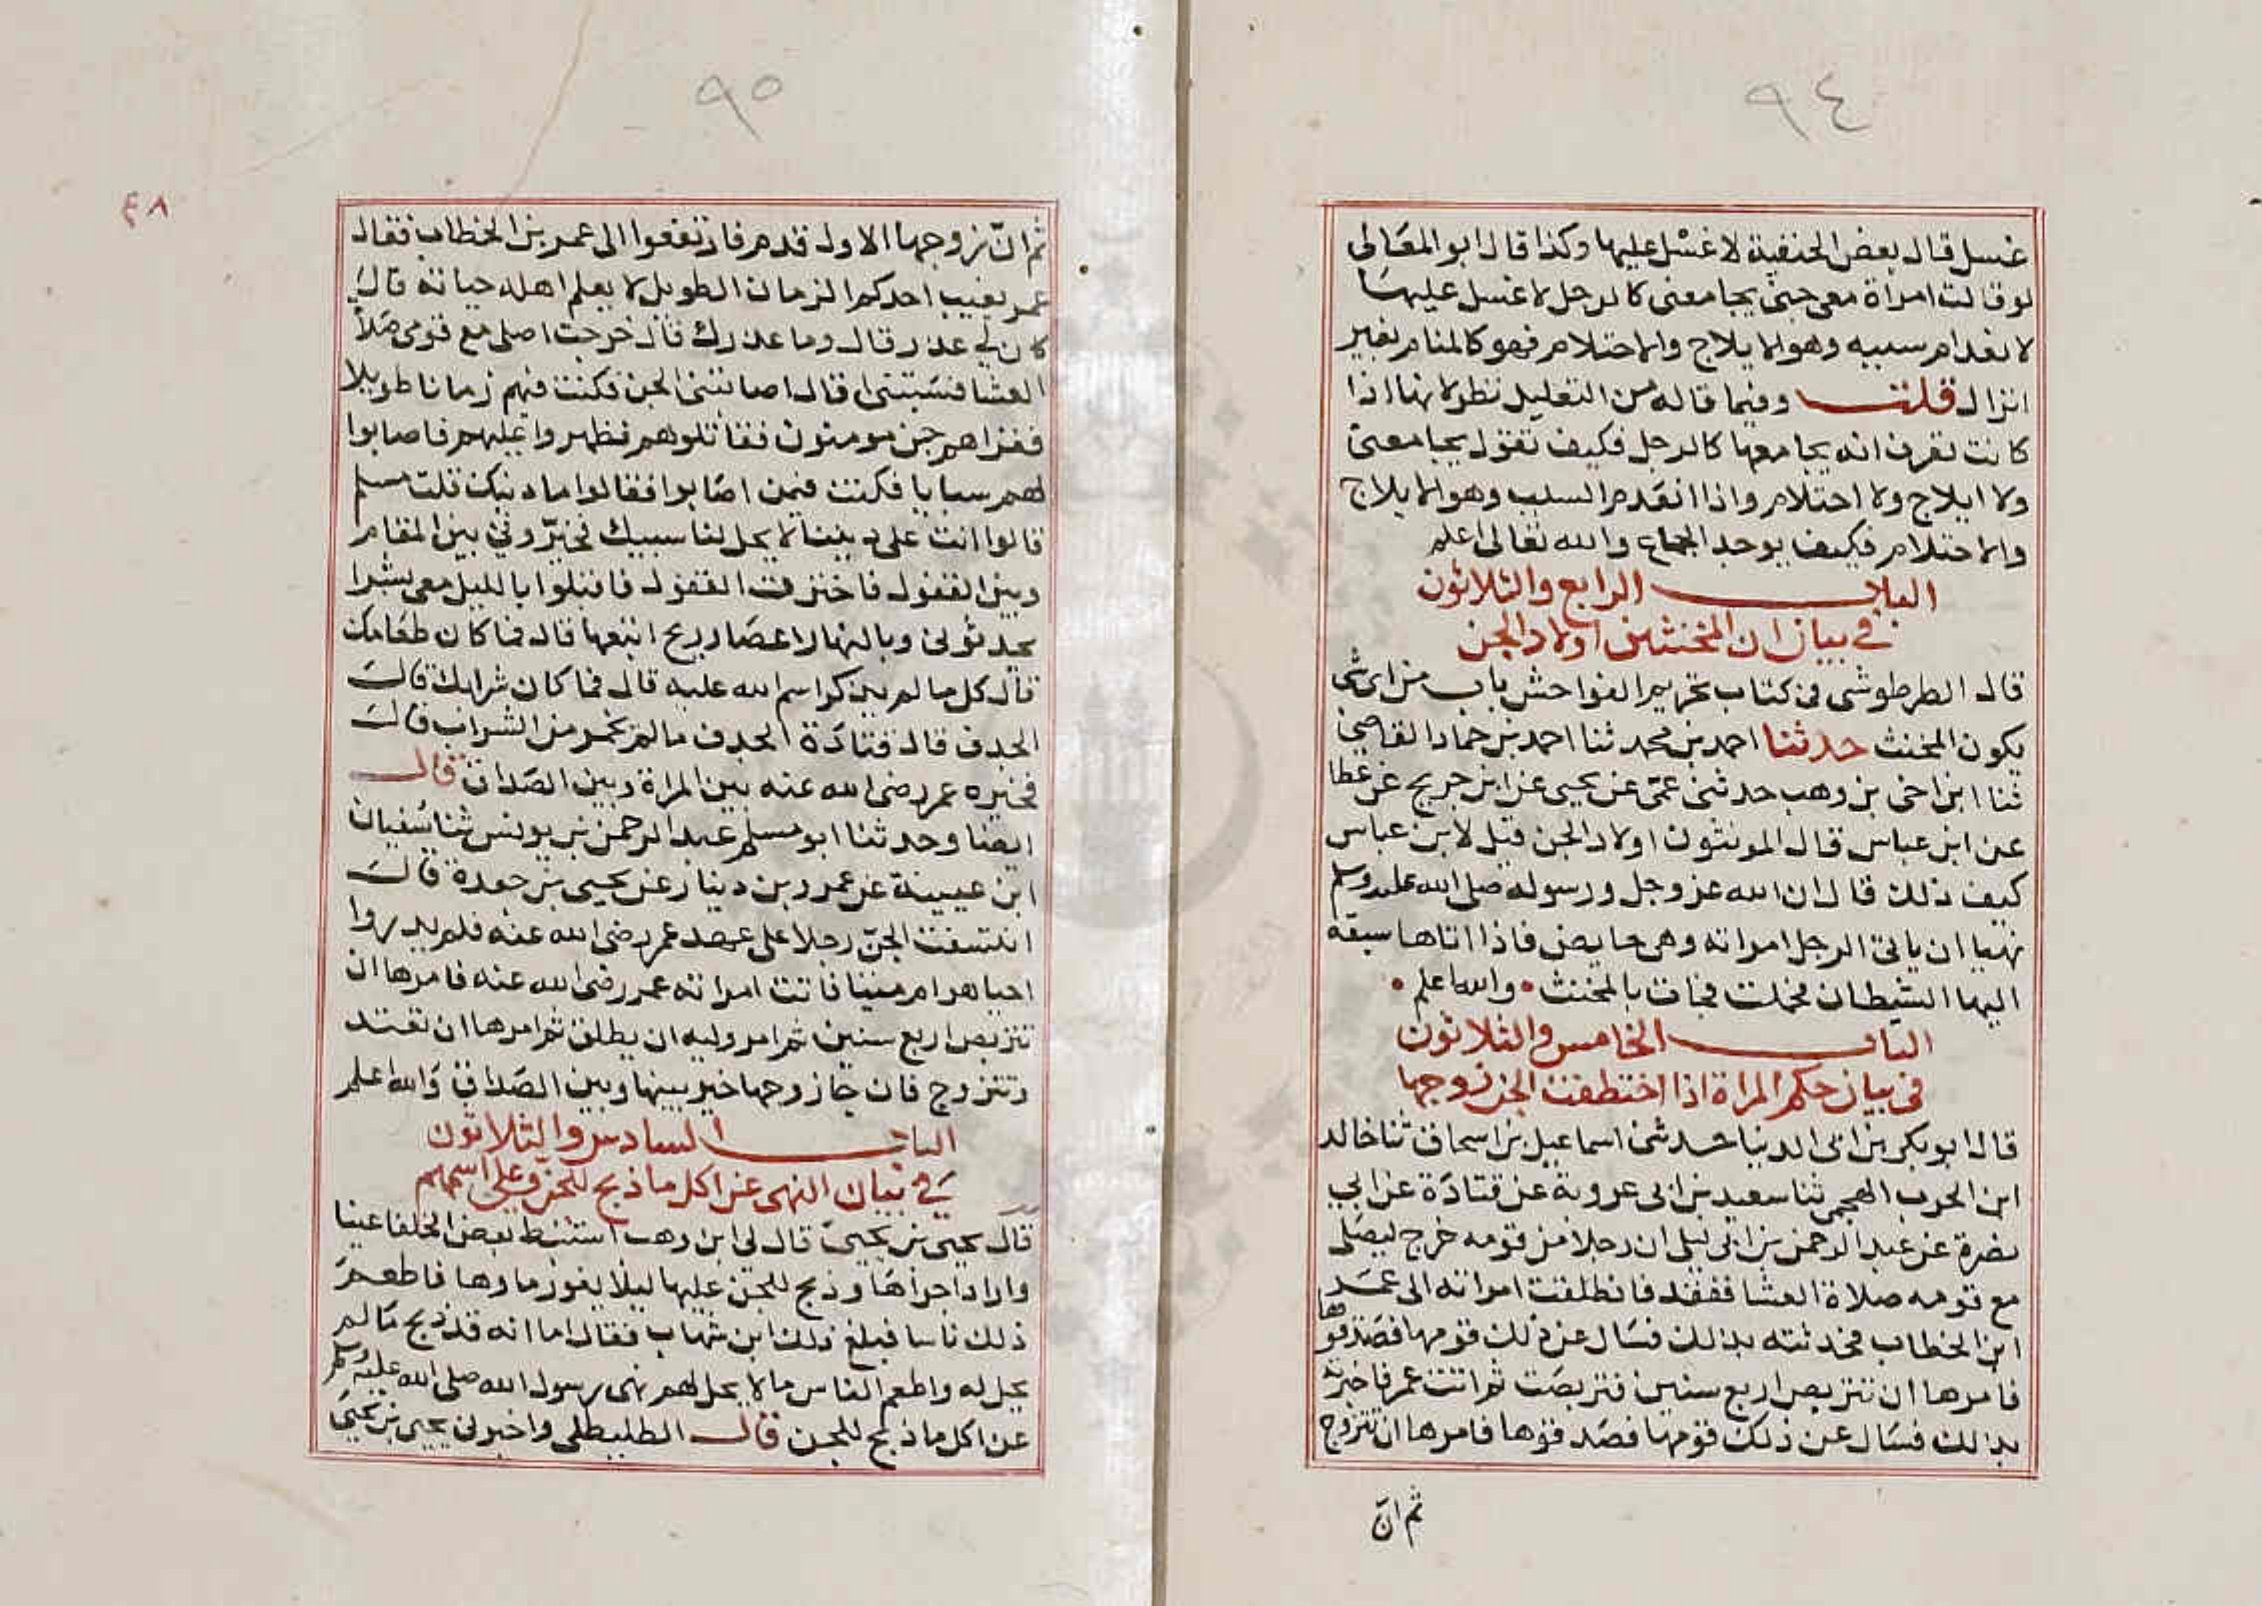 ٩٤
غسل قال بعض الحنفية لا غسل عليها وكذا قال ابو المعالى
لو قالت امراة معى جنى يجامعنى كالرجل لا غسل عليها
لانعدام سببه وهو الايلاج والاحتلام فهو كالمنام بغير
انزال قلت وفيما قاله من التعليل نظر لانها اذا
كانت تعرف انه يجامعها كالرجل فكيف تقول يجامعنى
ولا ايلاج ولا احتلام واذا انعدم السبب وهو الايلاج
والاحتلام فكيف يوجد الجماع والله تعالى اعلم
الباب الرابع والثلاثون
في بيان ان المخنثين اولاد الجن
قال الطرطوشى فى كتاب تحريم الفواحش باب من اى شى
يكون المخنث حدثنا احمد بن محمد ثنا احمد بن حماد القاضى
ثنا ابن اخى بن وهب حدثنى عمى عن يحيى عن ابن جريج عن عطا
عن ابن عباس قال المونثون اولاد الجن قيل لابن عباس
كيف ذلك قال ان الله عز وجل ورسوله صلى الله عليه وسلم
نهيا ان ياتى الرجل امراته وهى حايض فاذا اتاها سبقه
اليها الشيطان فحملت فجات بالمخنث والله اعلم
الباب الخامس والثلاثون
فى بيان حكم المراة اذا اختطفت الجن زوجها
قال ابو بكر بن ابى الدنيا حدثنى اسماعيل بن اسحاق ثنا خالد
ابن الحرب الهجمى ثنا سعيد بن ابى عروبة عن قتادة عن ابي
نضرة عن عبد الرحمن بن ابى ليلى ان رجلا من قومه خرج ليصلى
مع قومه صلاة العشا ففقد فانطلقت امراته الى عمر
ابن الخطاب فحدثته بذلك فسال عن ذلك قومها فصدقوها
فامرها ان تتربص اربع سنين فتربصت ثم اتت عمر فاخبرته
بذلك فسال عن ذلك قومها فصدقوها فامرها ان تتزوج
ثم انّ
٩٥
٤٨
ثم انّ زوجها الاول قدم فارتفعوا الى عمر بن الخطاب فقال
عمر يغيب احدكم الزمان الطويل لا يعلم اهله حياته قال
كان لي عذر قال وما عذرك قال خرجت اصلى مع قومى صلاة
العشا فسبتنى او قال اصابتنى الجن فكنت فيهم زمانا طويلا
فغزاهم جن مومنون فقاتلوهم فظهروا عليهم فاصابوا
لهم سبايا فكنت فيمن اصابوا فقالوا ما دينك قلت مسلم
قالوا انت على ديننا لا يحل لنا سبيك فخيّروني بين المقام
وبين القفول فاخترت القفول فاقبلوا بالليل معى بشرا
يحدثونى وبالنهار اعصار ريح اتبعها قال فما كان طعامك
قال كل ما لم يذكر اسم الله عليه قال فما كان شرابك قال
الجدف قال قتادة الجدف ما لم يخمر من الشراب قال
فخيره عمر رضى الله عنه بين المراة وبين الصداق قال
ايضا وحدثنا ابو مسلم عبد الرحمن بن يونس ثنا سفيان
ابن عيينة عن عمرو بن دينار عن يحيى بن جعدة قال
انتسفت الجنّ رجلا على عهد عمر رضى الله عنه فلم يدروا
احيا هو ام ميتا فاتت امراته عمر رضى الله عنه فامرها ان
تتربص اربع سنين ثم امر وليه ان يطلق ثم امرها ان تعتد
وتتزوج فان جا زوجها خير بينها وبين الصداق والله اعلم
الباب السادس والثلاثون
في بيان النهى عن اكل ما ذبح للجن وعلى اسمهم
قال يحيى بن يحيى قال لى ابن وهب استنبط بعض الخلفا عينا
واراد اجراها وذبح للجن عليها ليلا يغور ماوها فاطعم
ذلك ناسا فبلغ ذلك ابن شهاب فقال اما انه قد ذبح ما لم
يحل له واطعم الناس ما لا يحل لهم نهى رسول الله صلى الله عليه وسلم
عن اكل ما ذبح للجن قال الطليطلى واخبرنى يحيى بن يحيى